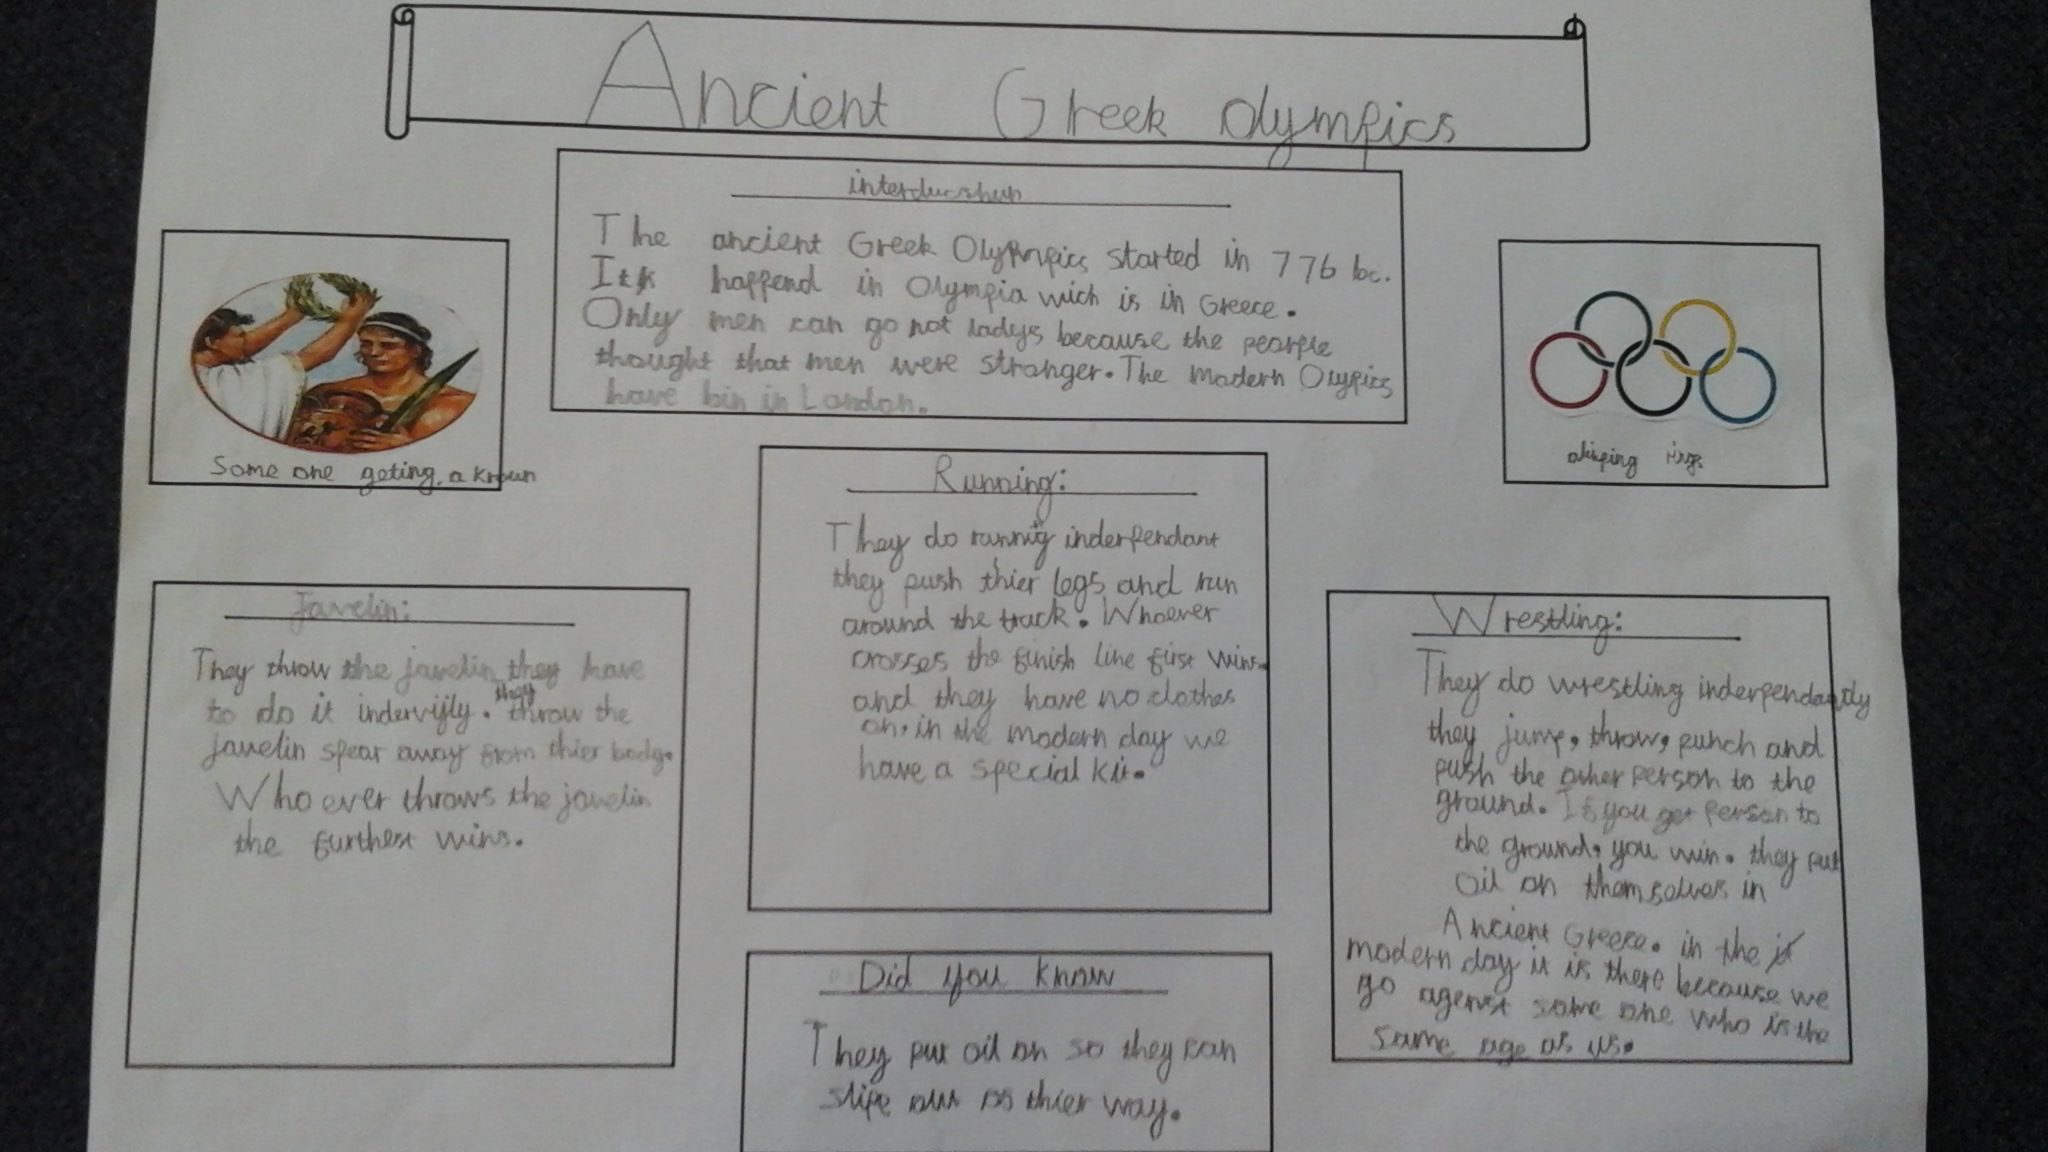 Ancient Greek Olympics
interducshun
The ancient Greek Olympics started in 776 bc.
It happend in Olympia wich is in Greece.
Only men can go not ladys because the peorple
thought that men were stronger. The modern Olypics
have bin in London.
Some one geting a kroun
rings
Running:
They do running inderpendant
they push thier legs and run
around the track. Whoever
crosses the finish line first wins.
and they have no clothes
on. in the modern day we
have a special kit.
Javelin:
They throw the javelin they have
to do it indervijly. they throw the
javelin spear away from thier body.
Who ever throws the javelin
the furthest wins.
Wrestling:
They do wrestling inderpendantly
they jump, throw, punch and
push the other person to the
ground. If you get person to
the ground, you win. they put
oil on themselves in
Ancient Greece. in the
modern day it is there because we
go agenst some one who is the
same age as us.
Did you know
They put oil on so they can
slipe out os thier way.